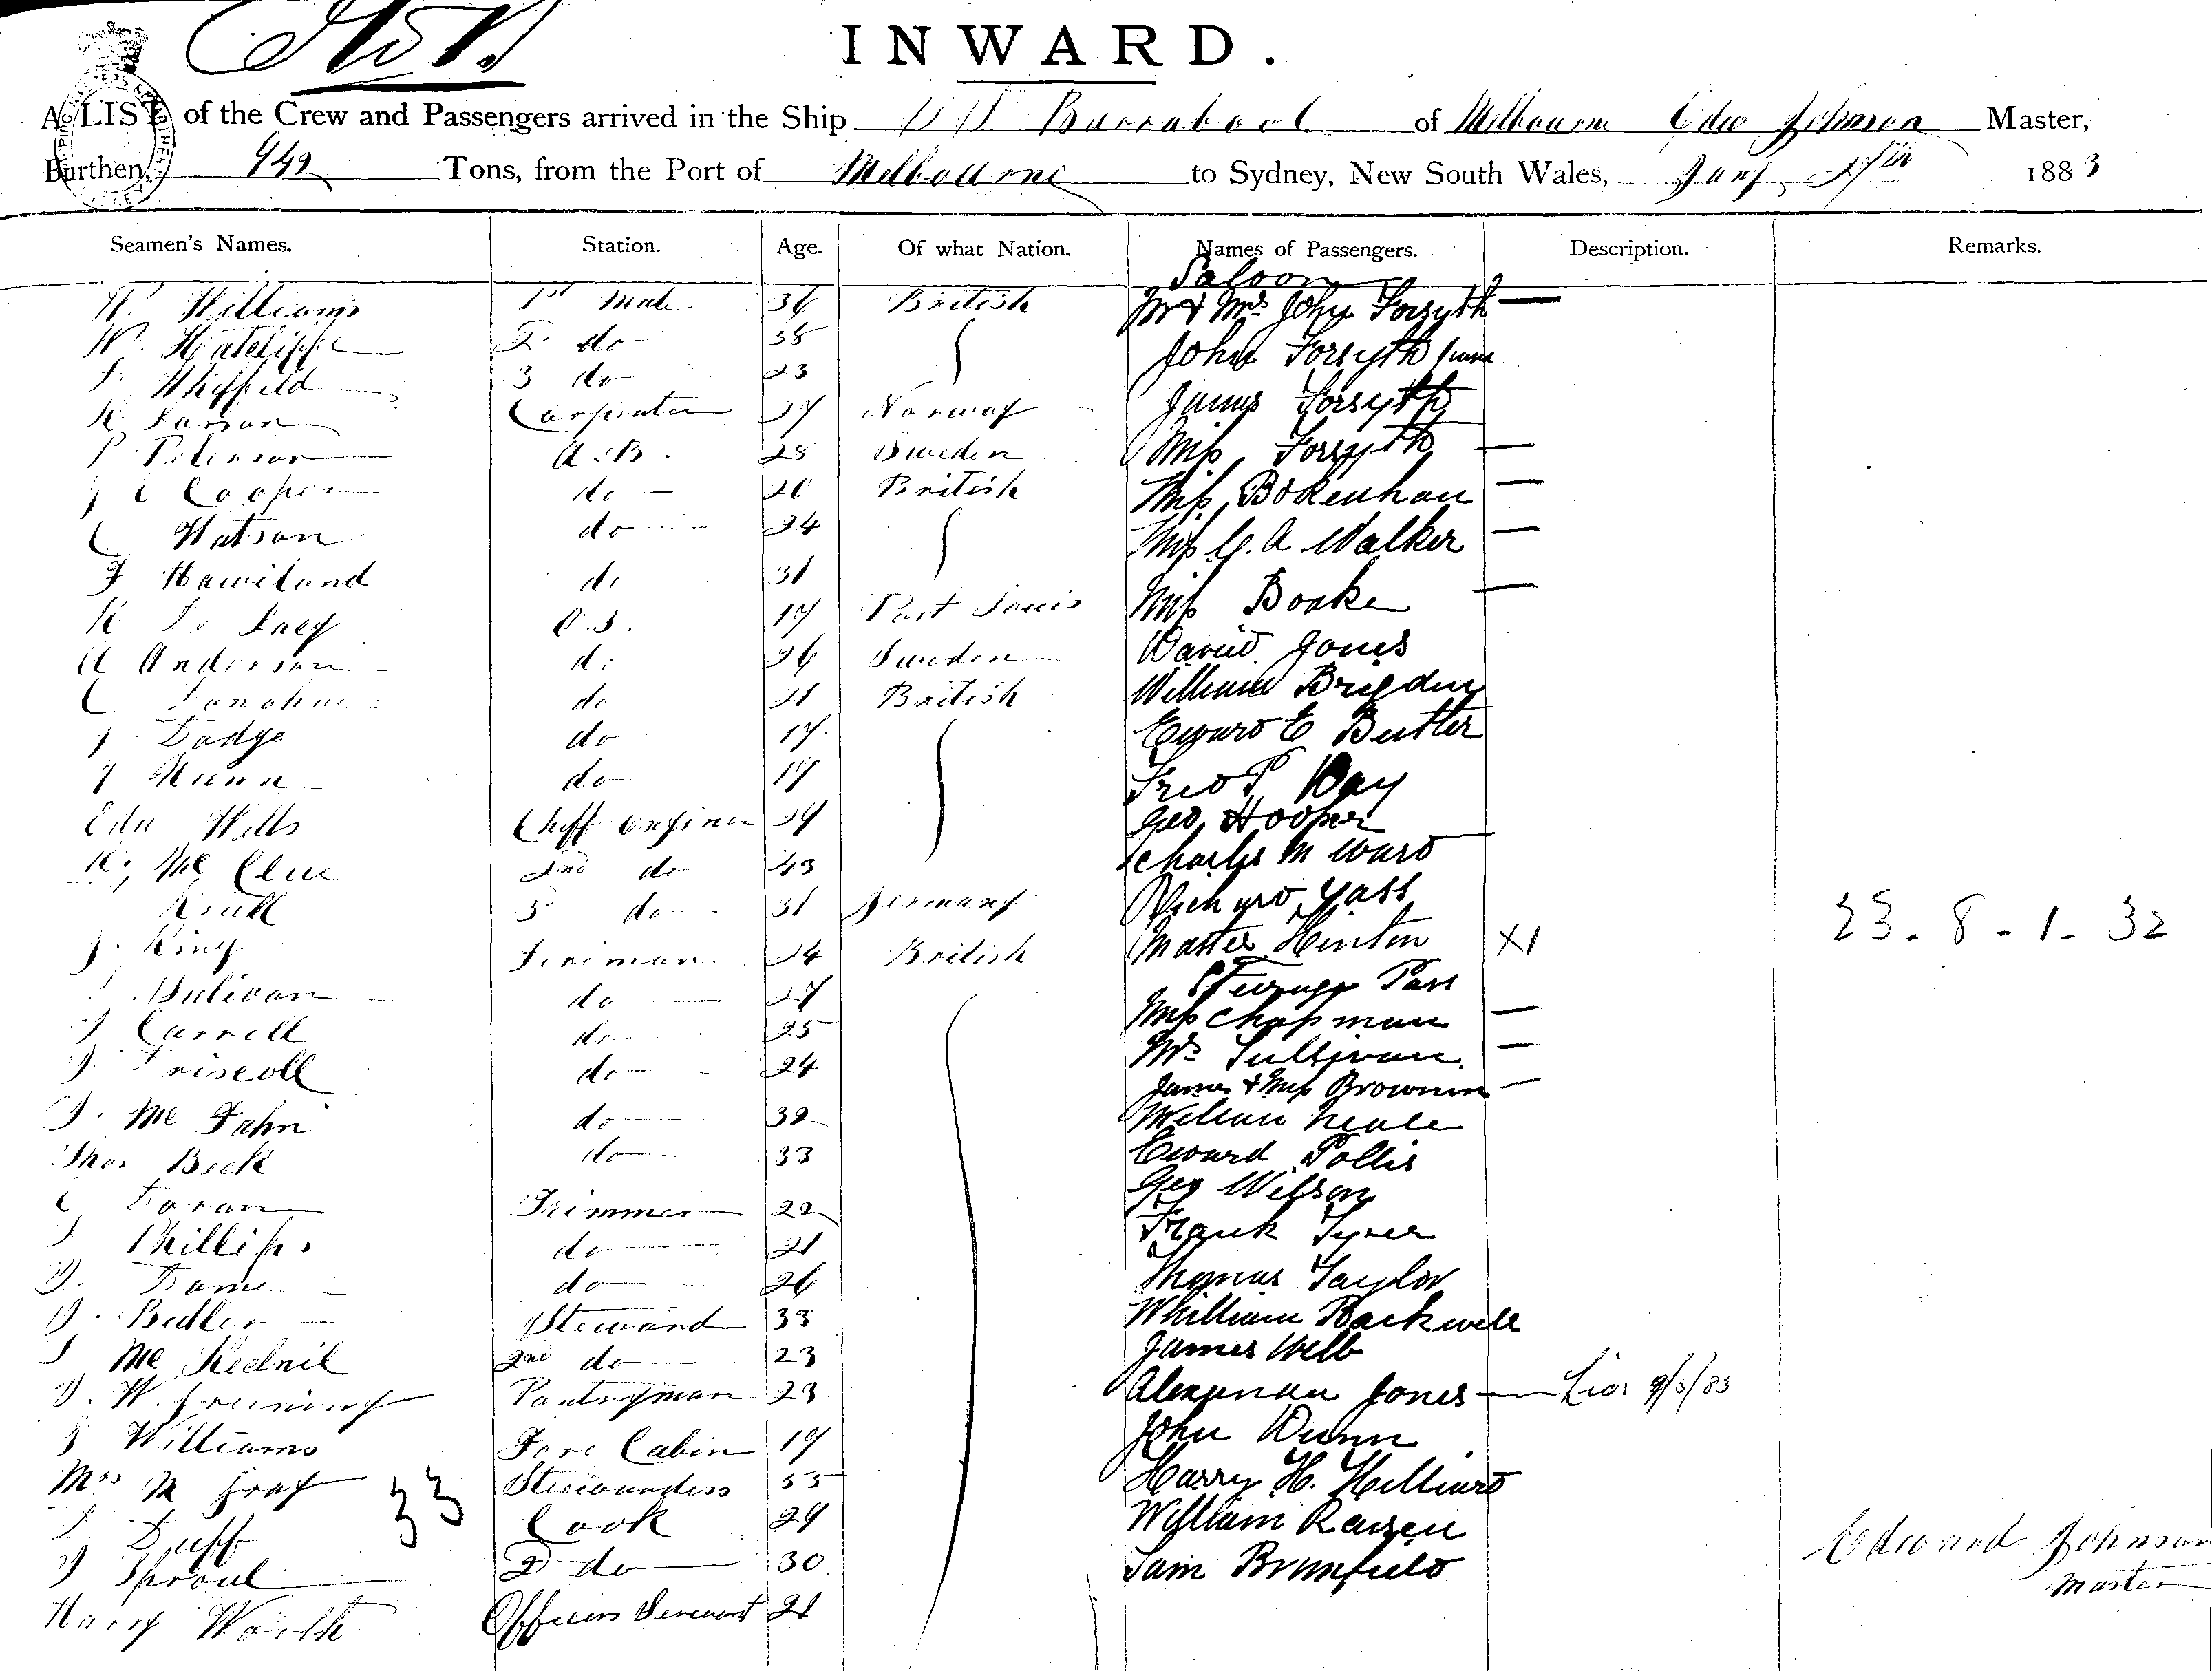 INWARD.
A LIST of the Crew and Passengers arrived in the Ship SS Barrabool of Melbourne Edw Johnson Master,
Burthen, 942 Tons, from the Port of Melbourne to Sydney, New South Wales, Jany 1883
Seamen's Names. Station. Age. Of what Nation. Names of Passengers. Description. Remarks.
Saloon
W. Williams 1st Mate 36 British Mr & Mrs John Forsyth
W. 2 do 35 John Forsyth Junr
Sheffield 3 do 23
K. Larson Carpenter 27 Norway James Forsyth
P Peterson A.B. 28 Sweden Miss Forsyth
Cooper do 26 British Miss Bokenham
C Watson do 24 Miss G. A Walker
F Haviland do 31
O.S. 17 Port Louis Miss Boake
A Anderson do 26 Sweden David Jones
C Donohue do 21 British William Brigden
J Dodge do 17 Edward E Butler
J Nunn do 17 Fred P. Day
Edw Wills Cheff Enginer 29 Geo Hooper
Mc Clue 2nd do 43 Charles M Ward
Krull 3 do 31 Germany Richard Yass
23 - 8 - 1 - 32
J. King Fireman 24 British Master Hinton X1
Steerage Pass
Sulivan do 27 Miss Chapman
J Carroll do 25 Mrs Sullivan
J. Driscoll do 24 James & Mrs Brownin
J. Mc Fahn do 32 William Neale
Thos Beck do 33 Edward Pollis
C Doran Trimmer 22 Geo Wilson
J Phillips do 21 Frank Tyrer
do 26 Thomas Taylor
J. Butler Steward 33 Whilliam Backwell
J Mc 2nd do 23 James Webb
J. W. Greening Pantryman 23 Alexander Jones 9/3/83
J Williams Fore Cabin 19 John Dunn
Mrs M Gray 33 Stewardess 55 Harry H. Hilliard
J Duff Cook 29 William
J Sproul 2 do 30 Sam Brumfield
Edward Johnson
Master
Harry Worth Officers Servant 21